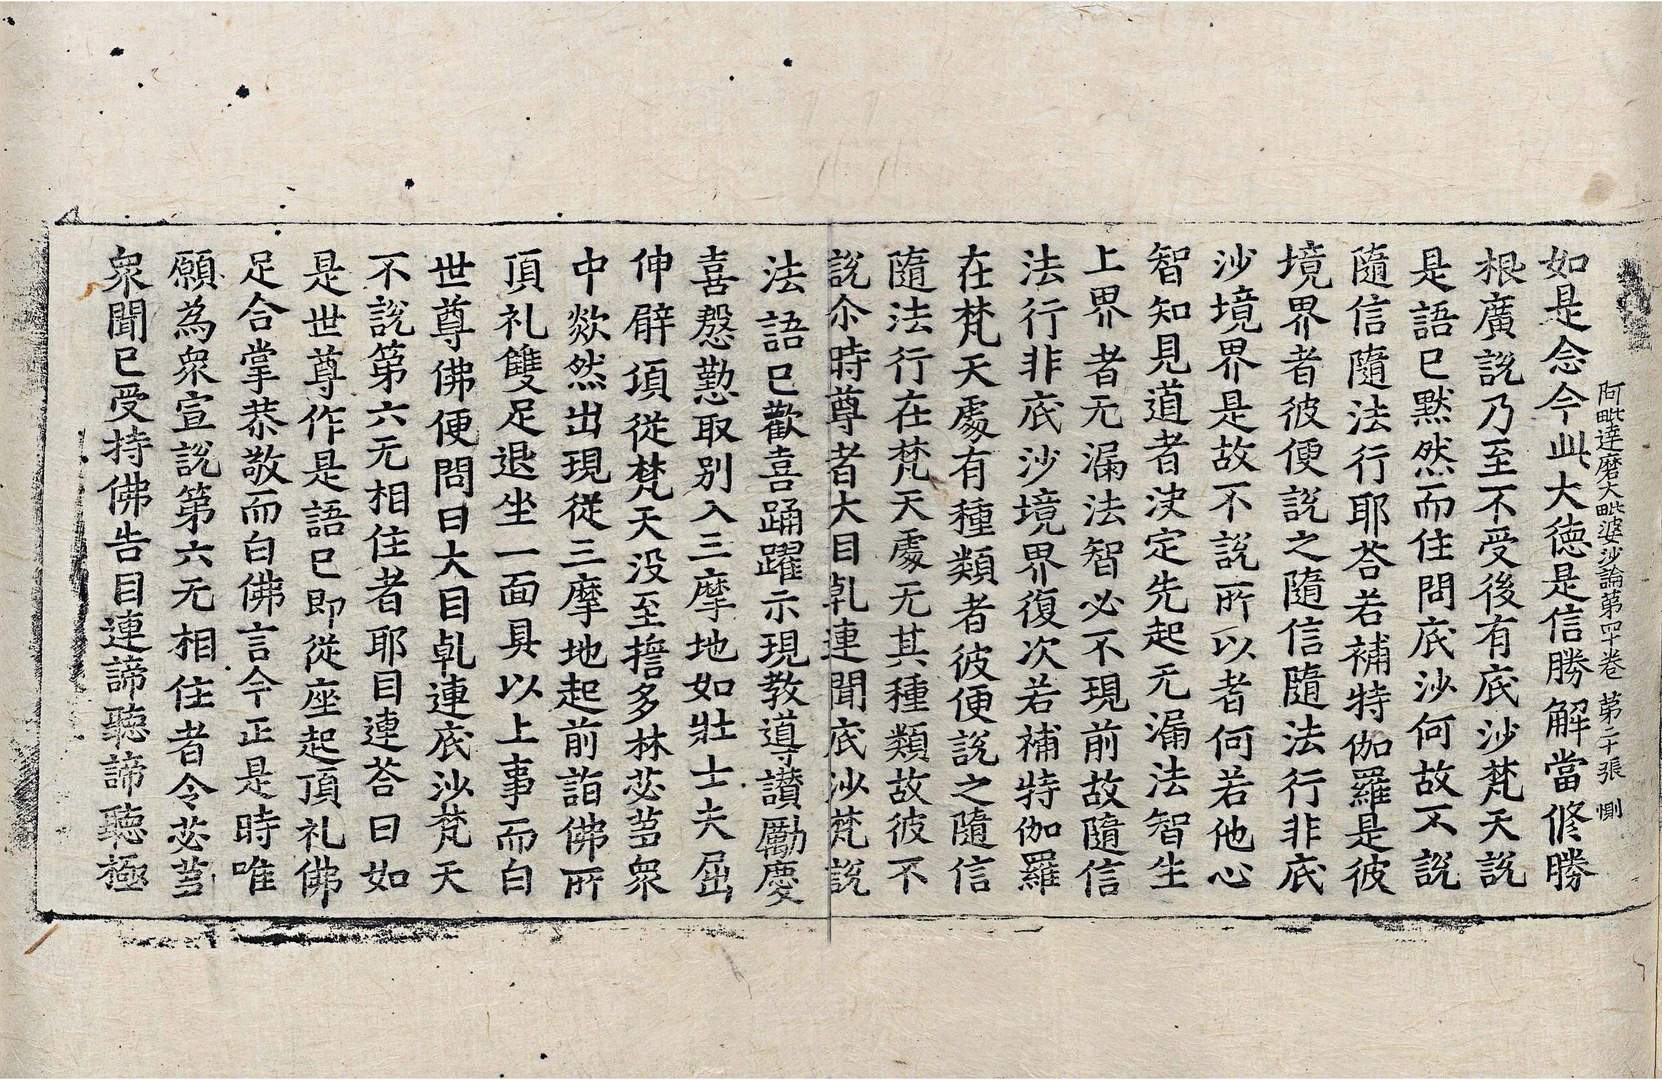 阿毗達磨大毗婆沙論第四十卷 第二十張 惻
如是念今此大德是信勝解當修勝
根廣說乃至不受後有底沙梵天說
是語已默然而住問底沙何故不說
隨信隨法行耶荅若補特伽羅是彼
境界者彼便說之隨信隨法行非底
沙境界是故不說所以者何若他心
智知見道者決定先起无漏法智生
上界者无漏法智必不現前故隨信
法行非底沙境界復次若補特伽羅
在梵天處有種類者彼便說之隨信
隨法行在梵天處无其種類故彼不
說尒時尊者大目乹連聞底沙梵說
法語已歡喜踊躍示現教導讃勵慶
喜慇懃取別入三摩地如壯士夫屈
伸臂項從梵天没至擔多林苾蒭衆
中欻然出現從三摩地起前詣佛所
頂礼雙足退坐一面具以上事而白
世尊佛便問曰大目乹連底沙梵天
不說第六无相住者耶目連荅曰如
是世尊作是語已即從座起頂礼佛
足合掌恭敬而白佛言今正是時唯
願為衆宣說第六无相住者令苾蒭
衆聞已受持佛告目連諦聽諦聽極